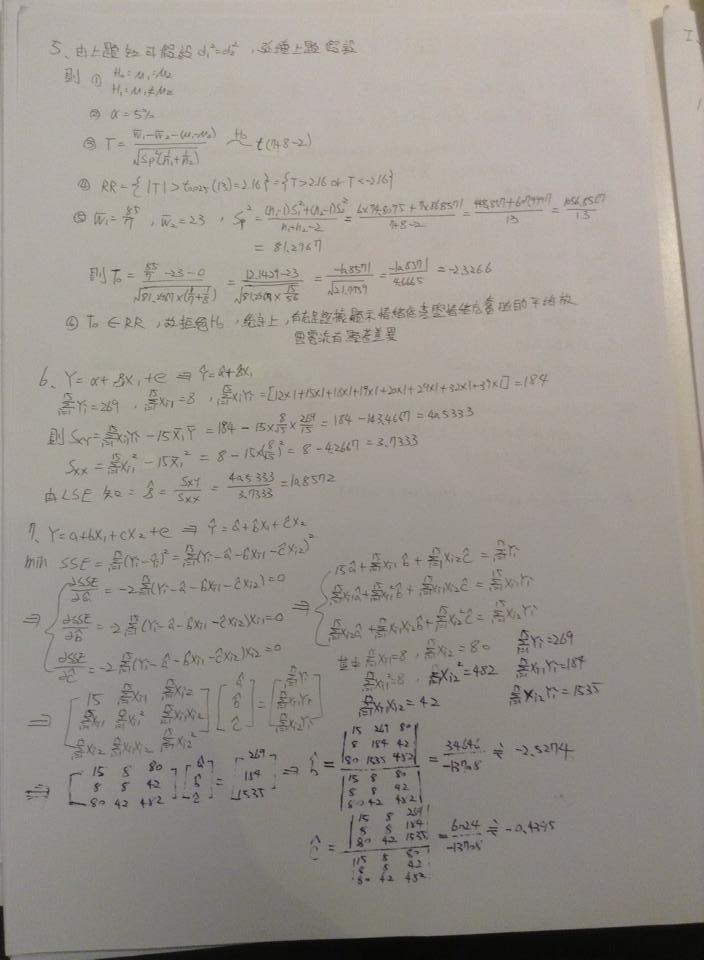 5、由上題知可假設 σ₁²=σ₂², 延續上題假設
則 ① H₀=μ₁=μ₂
H₁=μ₁≠μ₂
② α=5%
③ T = (w̄₁-w̄₂-(μ₁-μ₂))/√(Sp²(1/n₁+1/n₂)) ~ H₀ t(7+8-2)
④ RR={|T|>t0.025(13)=2.16}={T>2.16 or T<-2.16}
⑤ w̄₁=85/7, w̄₂=23, Sp²=((n₁-1)S₁²+(n₂-1)S₂²)/(n₁+n₂-2)=(6×74.8095+7×86.8571)/(7+8-2)=(448.857+607.9997)/13=1056.8567/13
=81.2967
則 T₀=(85/7-23-0)/√(81.2967×(1/7+1/8))=(12.1429-23)/√(81.2967×15/56)=-10.8571/√21.7759=-10.8571/4.6665=-2.3266
⑥ T₀∈RR, 故拒絕H₀,
6、Y=α+βX₁+e ⇒ Ŷ=α̂+β̂X₁
Σ(i=1→15)Yi=269, Σ(i=1→15)Xi1=8, Σ(i=1→15)XiYi=[12×1+15×1+18×1+19×1+20×1+29×1+32×1+39×1]=184
則 SXY=Σ(i=1→15)XiYi-15X̄₁Ȳ=184-15×8/15×269/15=184-143.4667=40.5333
SXX=Σ(i=1→15)Xi1²-15X̄₁²=8-15×(8/15)²=8-4.2667=3.7333
由LSE知=β̂=SXY/SXX=40.5333/3.7333=10.8572
7、Y=a+bX₁+cX₂+e ⇒ Ŷ=â+b̂X₁+ĉX₂
min SSE=Σ(i=1→15)(Yi-Ŷi)²=Σ(i=1→15)(Yi-â-b̂Xi1-ĉXi2)²
⇒ { ∂SSE/∂â=-2Σ(i=1→15)(Yi-â-b̂Xi1-ĉXi2)=0
∂SSE/∂b̂=-2Σ(i=1→15)(Yi-â-b̂Xi1-ĉXi2)Xi1=0
∂SSE/∂ĉ=-2Σ(i=1→15)(Yi-â-b̂Xi1-ĉXi2)Xi2=0
⇒ { 15â+ΣXi1b̂+ΣXi2ĉ=ΣYi
ΣXi1â+ΣXi1²b̂+ΣXi1Xi2ĉ=ΣXi1Yi
ΣXi2â+ΣXi1Xi2b̂+ΣXi2²ĉ=ΣXi2Yi
ΣXi1=8, ΣXi2=80 ΣYi=269
ΣXi1²=8, ΣXi2²=482 ΣXi1Yi=184
ΣXi1Xi2=42 ΣXi2Yi=1535
⇒ [15 ΣXi1 ΣXi2 [â [ΣYi
ΣXi1 ΣXi1² ΣXi1Xi2 b̂ = ΣXi1Yi
ΣXi2 ΣXi1Xi2 ΣXi2²] ĉ] ΣXi2Yi]
⇒ [15 8 80 [â [269
8 8 42 b̂ = 184
80 42 482] ĉ] 1535]
⇒ b̂ = |15 269 80
8 184 42
80 1535 482|
/ |15 8 80
8 8 42
80 42 482| = 34646/-13708 ≑ -2.5274
ĉ = |15 8 269
8 8 184
80 42 1535|
/ |15 8 80
8 8 42
80 42 482| = 6024/-13708 ≑ -0.4395